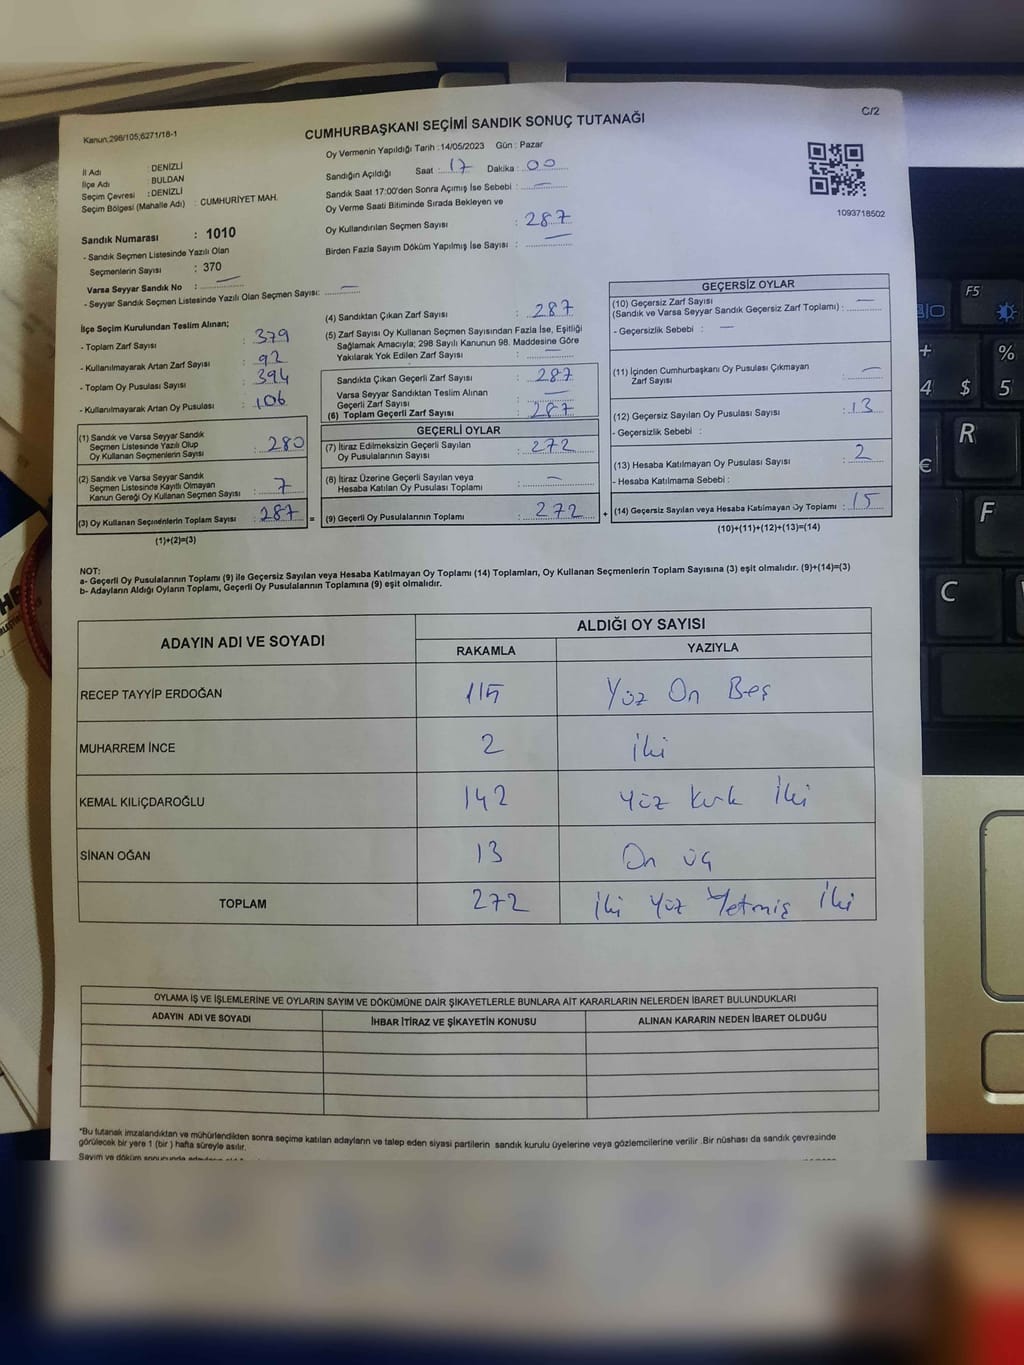 C/2
Kanun;298/105;6271/18-1
CUMHURBAŞKANI SEÇİMİ SANDIK SONUÇ TUTANAĞI
İl Adı : DENİZLİ
İlçe Adı : BULDAN
Seçim Çevresi : DENİZLİ
Seçim Bölgesi (Mahalle Adı) : CUMHURİYET MAH.
Sandık Numarası : 1010
- Sandık Seçmen Listesinde Yazılı Olan
Seçmenlerin Sayısı : 370
Varsa Seyyar Sandık No : —
- Seyyar Sandık Seçmen Listesinde Yazılı Olan Seçmen Sayısı: —
Oy Vermenin Yapıldığı Tarih :14/05/2023 Gün : Pazar
Sandığın Açıldığı Saat : 17 Dakika : 00
Sandık Saat 17:00'den Sonra Açımış İse Sebebi : —
Oy Verme Saati Bitiminde Sırada Bekleyen ve
Oy Kullandırılan Seçmen Sayısı : 287
Birden Fazla Sayım Döküm Yapılmış İse Sayısı : —
1093718502
İlçe Seçim Kurulundan Teslim Alınan;
- Toplam Zarf Sayısı : 379
- Kullanılmayarak Artan Zarf Sayısı : 92
- Toplam Oy Pusulası Sayısı : 394
- Kullanılmayarak Artan Oy Pusulası : 106
(1) Sandık ve Varsa Seyyar Sandık
Seçmen Listesinde Yazılı Olup
Oy Kullanan Seçmenlerin Sayısı : 280
(2) Sandık ve Varsa Seyyar Sandık
Seçmen Listesinde Kayıtlı Olmayan
Kanun Gereği Oy Kullanan Seçmen Sayısı : 7
(3) Oy Kullanan Seçmenlerin Toplam Sayısı : 287 =
(1)+(2)=(3)
(4) Sandıktan Çıkan Zarf Sayısı : 287
(5) Zarf Sayısı Oy Kullanan Seçmen Sayısından Fazla İse, Eşitliği
Sağlamak Amacıyla; 298 Sayılı Kanunun 98. Maddesine Göre
Yakılarak Yok Edilen Zarf Sayısı : —
Sandıkta Çıkan Geçerli Zarf Sayısı : 287
Varsa Seyyar Sandıktan Teslim Alınan
Geçerli Zarf Sayısı : —
(6) Toplam Geçerli Zarf Sayısı : 287
GEÇERLİ OYLAR
(7) İtiraz Edilmeksizin Geçerli Sayılan
Oy Pusulalarının Sayısı : 272
(8) İtiraz Üzerine Geçerli Sayılan veya
Hesaba Katılan Oy Pusulası Toplamı : —
(9) Geçerli Oy Pusulalarının Toplamı : 272 +
GEÇERSİZ OYLAR
(10) Geçersiz Zarf Sayısı
(Sandık ve Varsa Seyyar Sandık Geçersiz Zarf Toplamı) : —
- Geçersizlik Sebebi : —
(11) İçinden Cumhurbaşkanı Oy Pusulası Çıkmayan
Zarf Sayısı : —
(12) Geçersiz Sayılan Oy Pusulası Sayısı : 13
- Geçersizlik Sebebi :
(13) Hesaba Katılmayan Oy Pusulası Sayısı : 2
- Hesaba Katılmama Sebebi :
(14) Geçersiz Sayılan veya Hesaba Katılmayan Oy Toplamı : 15
(10)+(11)+(12)+(13)=(14)
NOT:
a- Geçerli Oy Pusulalarının Toplamı (9) ile Geçersiz Sayılan veya Hesaba Katılmayan Oy Toplamı (14) Toplamları, Oy Kullanan Seçmenlerin Toplam Sayısına (3) eşit olmalıdır. (9)+(14)=(3)
b- Adayların Aldığı Oyların Toplamı, Geçerli Oy Pusulalarının Toplamına (9) eşit olmalıdır.
ADAYIN ADI VE SOYADI ALDIĞI OY SAYISI
RAKAMLA YAZIYLA
RECEP TAYYİP ERDOĞAN 115 Yüz On Beş
MUHARREM İNCE 2 İki
KEMAL KILIÇDAROĞLU 142 Yüz Kırk İki
SİNAN OĞAN 13 On üç
TOPLAM 272 İki Yüz Yetmiş İki
OYLAMA İŞ VE İŞLEMLERİNE VE OYLARIN SAYIM VE DÖKÜMÜNE DAİR ŞİKAYETLERLE BUNLARA AİT KARARLARIN NELERDEN İBARET BULUNDUKLARI
ADAYIN ADI VE SOYADI İHBAR İTİRAZ VE ŞİKAYETİN KONUSU ALINAN KARARIN NEDEN İBARET OLDUĞU
*Bu tutanak imzalandıktan ve mühürlendikten sonra seçime katılan adayların ve talep eden siyasi partilerin sandık kurulu üyelerine veya gözlemcilerine verilir .Bir nüshası da sandık çevresinde
görülecek bir yere 1 (bir ) hafta süreyle asılır.
Sayım ve döküm sonucunda
F5
+ %
4 $ 5
R
€
F
C